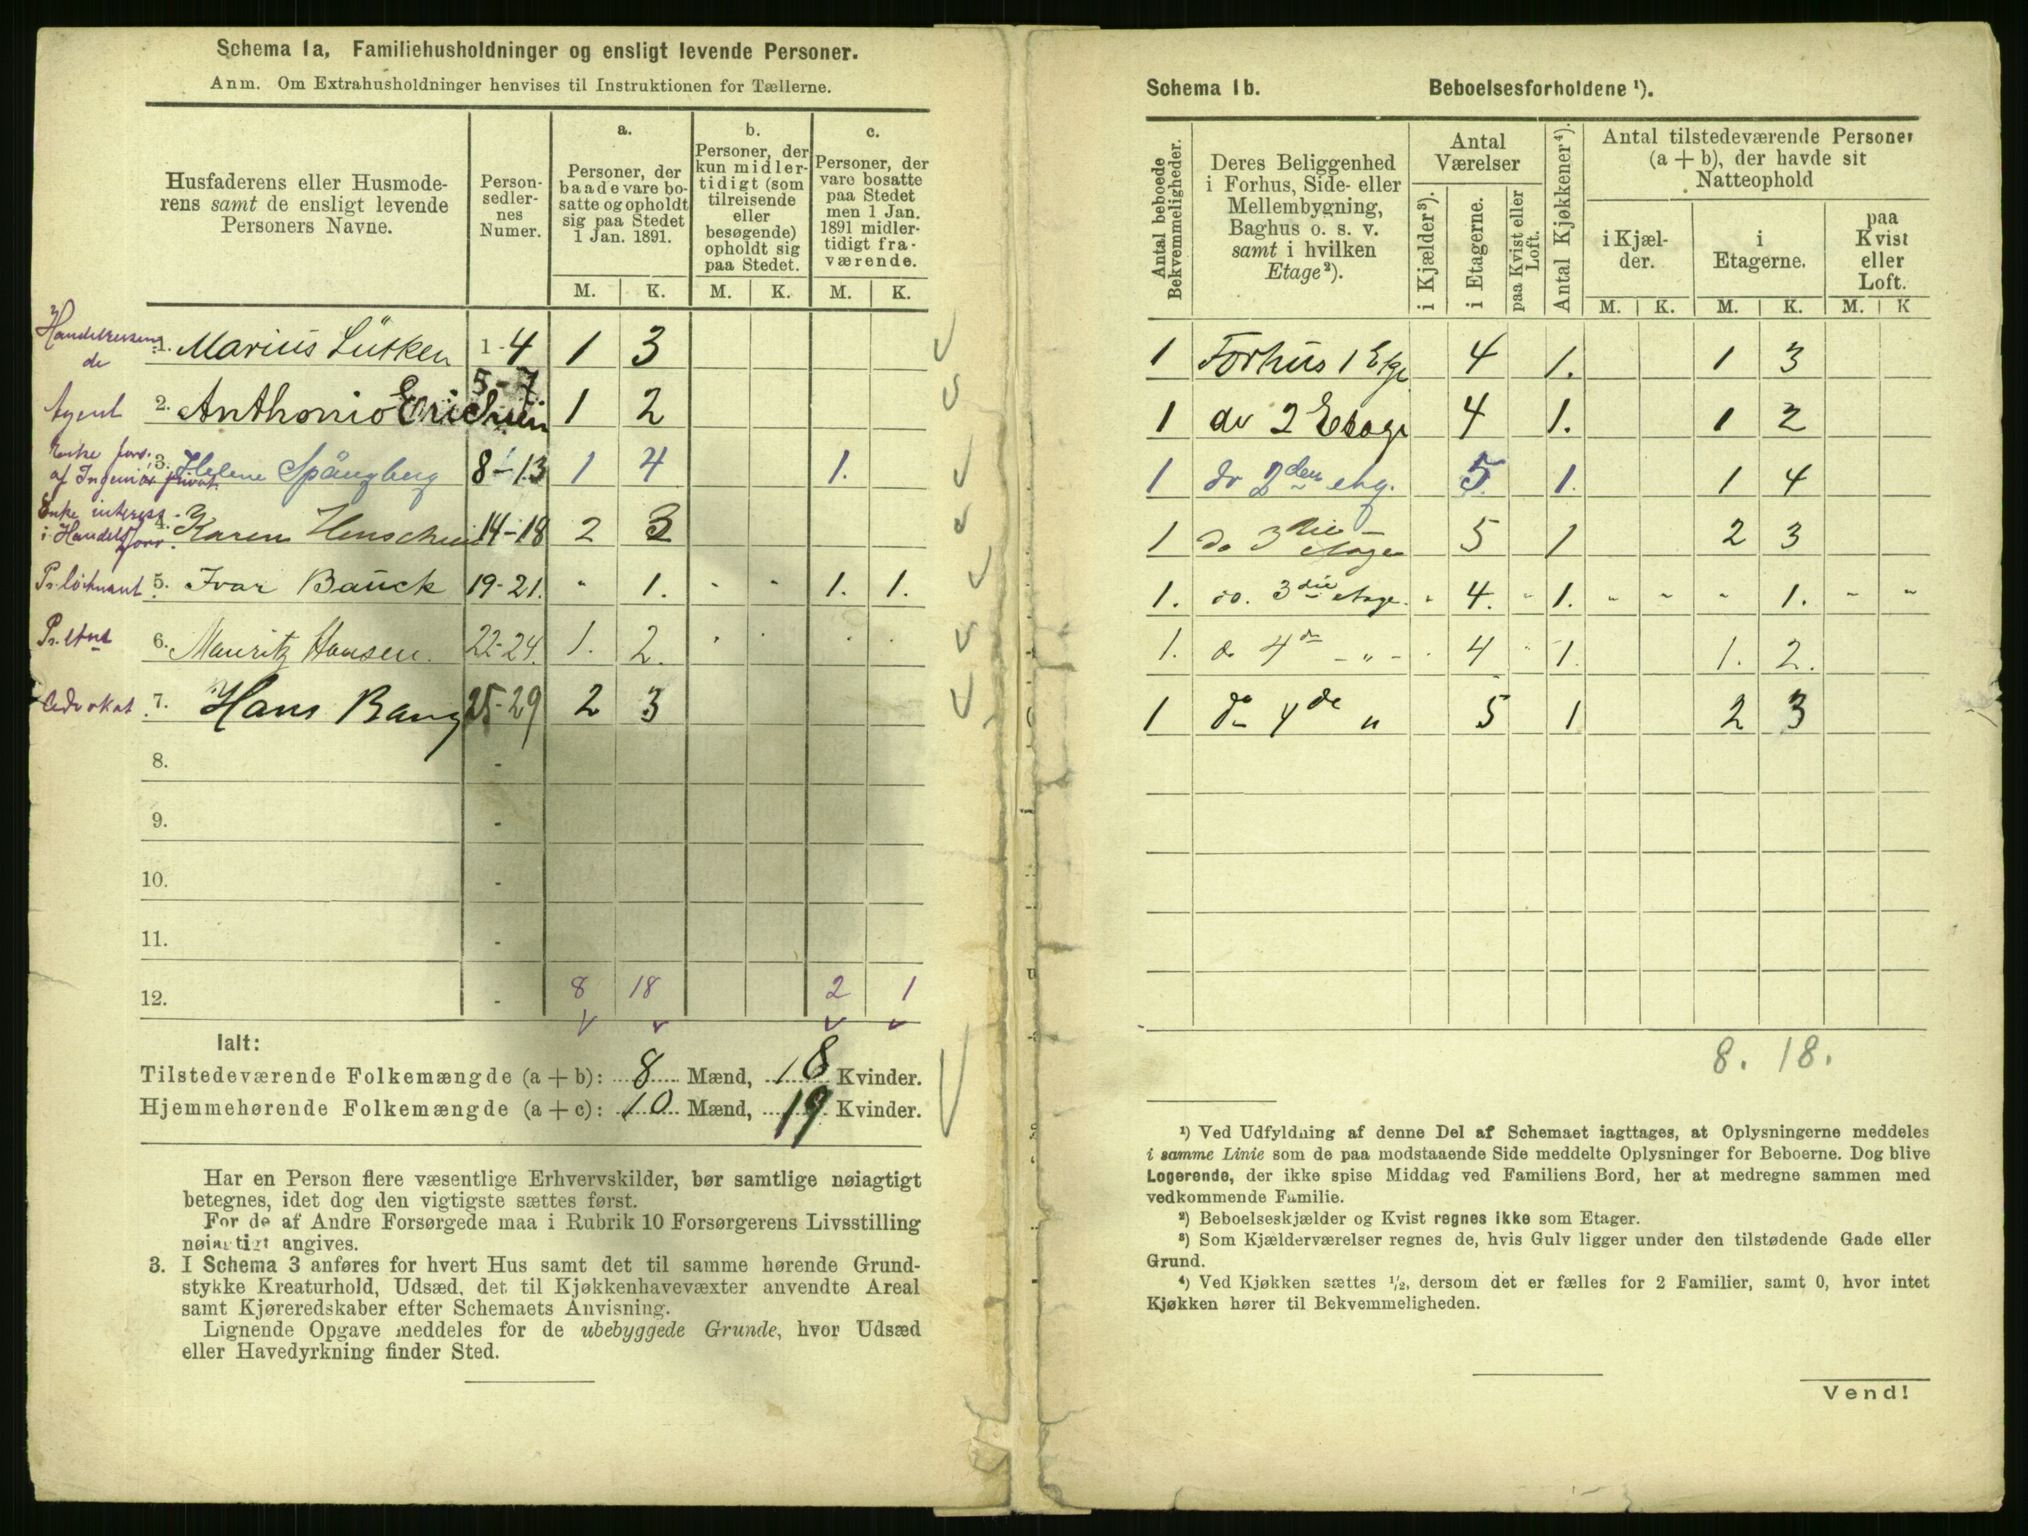 Schema 1a, Familiehusholdninger og ensligt levende Personer.
Anm. Om Extrahusholdninger henvises til Instruktionen for Tællerne.
Husfaderens eller Husmode-
rens samt de ensligt levende
Personers Navne.
Person-
sedler-
nes
Numer.
a.
Personer, der
baade vare bo-
satte og opholdt
sig paa Stedet
1 Jan. 1891.
b.
Personer, der
kun midler-
tidigt (som
tilreisende
eller
besøgende)
opholdt sig
paa Stedet.
c.
Personer, der
vare bosatte
paa Stedet
men 1 Jan.
1891 midler-
tidigt fra-
værende.
M. K. M. K. M. K.
Handelsreisen
de
1. Marius Lütken 1-4 1 3
Agent 2. Anthonio Erichsen 5-7 1 2
Enke
af Ingeniør privat.
3. Helene Spångberg 8-13 1 4 1.
Enke interess
i Handels
4. Karen Henschien 14-18 2 3
Pr. løitnant 5. Ivar Bauck 19-21. " 1. " " 1. 1.
6. Mauritz Hansen. 22-24. 1. 2.
Advokat 7. Hans Bang 25-29 2 3
8. -
9. -
10. -
11. -
12. - 8 18 2 1
Ialt:
Tilstedeværende Folkemængde (a + b): 8 Mænd, 18 Kvinder.
Hjemmehørende Folkemængde (a + c): 10 Mænd, 19 Kvinder.
Har en Person flere væsentlige Erhvervskilder, bør samtlige nøiagtigt
betegnes, idet dog den vigtigste sættes først.
For de af Andre Forsørgede maa i Rubrik 10 Forsørgerens Livsstilling
nøiagtigt angives.
3. I Schema 3 anføres for hvert Hus samt det til samme hørende Grund-
stykke Kreaturhold, Udsæd, det til Kjøkkenhavevæxter anvendte Areal
samt Kjøreredskaber efter Schemaets Anvisning.
Lignende Opgave meddeles for de ubebyggede Grunde, hvor Udsæd
eller Havedyrkning finder Sted.
Schema 1b. Beboelsesforholdene ¹).
Antal beboede
Bekvemmeligheder.
Deres Beliggenhed
i Forhus, Side- eller
Mellembygning,
Baghus o. s. v.
samt i hvilken
Etage ²).
Antal
Værelser
i Kjælder ³).
i Etagerne.
paa Kvist eller
Loft.
Antal Kjøkkener ⁴).
Antal tilstedeværende Personer
(a + b), der havde sit
Natteophold
i Kjæl-
der.
i
Etagerne.
paa
Kvist
eller
Loft.
M. K. M. K. M. K
1 Forhus 1 Etge 4 1. 1 3
1 do 2 Etage 4 1. 1 2
1 do 2den etg. 5 1. 1 4
1 do 3die Etage 5 1 2 3
1. do. 3die etage. " 4. " 1. " " " 1. " "
1. do 4de - " - 4 1. 1. 2.
1 do 4de " 5 1 2 3
8. 18.
¹) Ved Udfyldning af denne Del af Schemaet iagttages, at Oplysningerne meddeles
i samme Linie som de paa modstaaende Side meddelte Oplysninger for Beboerne. Dog blive
Logerende, der ikke spise Middag ved Familiens Bord, her at medregne sammen med
vedkommende Familie.
²) Beboelseskjælder og Kvist regnes ikke som Etager.
³) Som Kjælderværelser regnes de, hvis Gulv ligger under den tilstødende Gade eller
Grund.
⁴) Ved Kjøkken sættes ½, dersom det er fælles for 2 Familier, samt 0, hvor intet
Kjøkken hører til Bekvemmeligheden.
Vend!